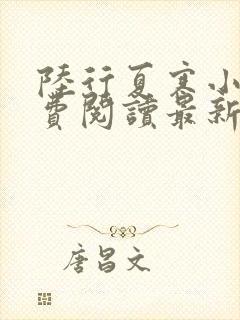 陸行夏寒小
費閱讀最新
唐昌文